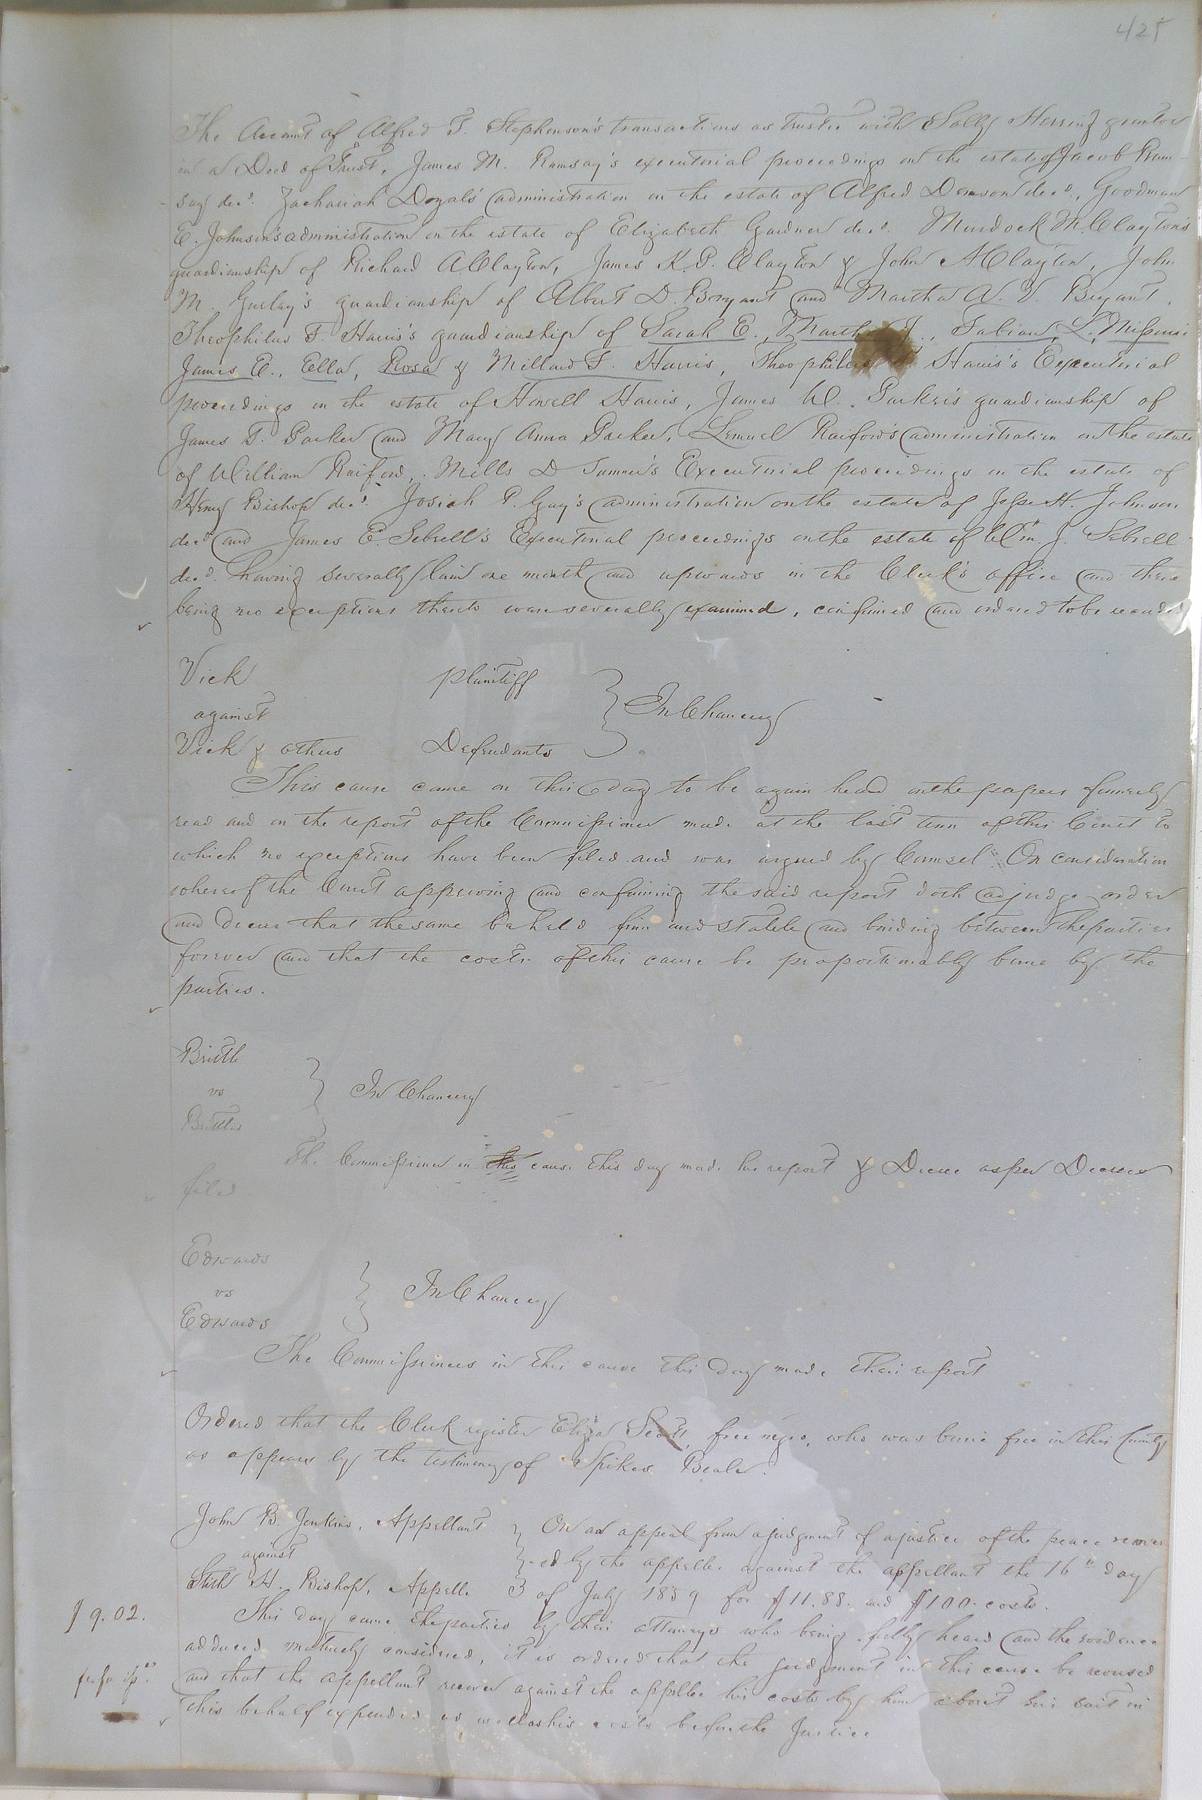 425
The Account of Alfred T. Stephenson's transactions as trustee with Sally Herring grantor
in a Deed of Trust, James M. Ramsay's executorial proceedings on the estate of Jacob Ram-
say dec'd. Zachariah Doyal's administration on the estate of Alfred Denson dec'd., Goodman
E. Johnson's administration on the estate of Elizabeth Gardner dec'd. Murdock M. Clayton's
guardianship of Richard A Clayton, James K. P. Clayton & John A Clayton, John
M. Gurley's guardianship of Albert D. Bryant and Martha A. V. Bryant,
Theophilus T. Harris's guardianship of Sarah E., Martha J., Fabian, L. Missouri
James E., Ella, Rosa & Millard F. Harris, Theophilus Harris's Executorial
proceedings on the estate of Howell Harris, James W. Parker's guardianship of
James T. Parker and Mary Anna Parker, Lemuel Raiford's administration on the estate
of William Raiford, Mills D Sumner's Executorial proceedings on the estate of
Henry Bishop dec'd. Josiah P. Gay's administration on the estate of Jesse H. Johnson
dec'd and James E. Sebrell's Executorial proceedings on the estate of Wm. J. Sebrell
dec'd. having severally lain one month and upwards in the Clerk's office and there
being no exceptions thereto were severally examined, confirmed and ordered to be recorded
Vick plaintiff
against } In Chancery
Vick & others Defendants
This cause came on this day to be again heard on the papers formerly
read and on the report of the Commissioner made at the last term of this Court to
which no exceptions have been filed and was argued by Counsel On consideration
whereof the Court approving and confirming the said report doth adjudge order
and Decree that the same be held firm and stable and binding between the parties
forever and that the costs of this cause be proportionably borne by the
parties.
Brittle
vs } In Chancery
Brittle
The Commissioner in this cause this day made his report & Decree as per Decree
filed
Edwards
vs } In Chancery
Edwards
The Commissioners in this cause this day made their report
Ordered that the Clerk register Eliza Scott, free negro, who was borne free in this County
as appears by the testimony of Spikes Beale.
John B. Jenkins, Appellant } On an appeal from a judgment of a justice of the peace render
against } -ed by the appellee against the appellant the 16th day
Stith H. Bishop, Appelle } of July 1859 for $11.88. and $1.00. costs.
$9.02. This day came the parties by their attorneys who being fully heard and the evidence
adduced maturely considered, it is ordered that the judgment in this cause be reversed
and that the appellant recover against the appellee his costs by him about his suit in
this behalf expended as well as his costs before the Justice